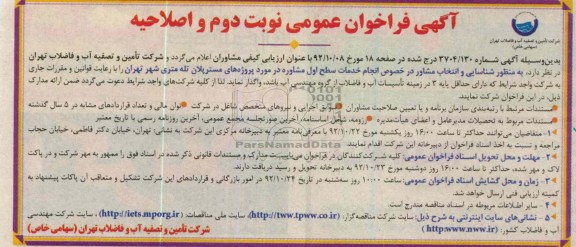 آگهی فراخوان عمومی نوبت دوم و اصلاحیه
شرکت تأمین و تصفیه آب و فاضلاب تهران
(سهامی خاص)
بدین‌وسیله آگهی شماره ۳۷۰۴/۱۳۰ درج شده در صفحه ۱۸ مورخ ۹۲/۱۰/۰۸ با عنوان ارزیابی کیفی مشاوران اعلام می‌گردد و شرکت تأمین و تصفیه آب و فاضلاب تهران
در نظر دارد، به منظور شناسایی و انتخاب مشاور در خصوص انجام خدمات سطح اول مشاوره در مورد پروژه‌های مسترپلان تله متری شهر تهران را با رعایت قوانین و مقررات جاری
به شرکت واجد شرایط که دارای حداقل پایه ۳ در زمینه تأسیسات آب و فاضلاب از گروه مهندسی آب باشد، واگذار نماید. لذا از کلیه شرکت‌های واجد شرایط دعوت می‌گردد ضمن ارائه مدارک
ذیل، در این فراخوان شرکت نمایند.
مستندات مرتبط با رتبه‌بندی سازمان برنامه و یا تعیین صلاحیت مشاوران اجرایی و نیروهای متخصص شاغل در شرکت توان مالی و تعداد قراردادهای مشابه در ۵ سال گذشته
مستندات مربوط به تحصیلات مدیرعامل و اعضای هیأت‌مدیره رزومه، متن اساسنامه، آخرین صورتجلسه مجمع عمومی، آخرین روزنامه رسمی یا تاریخ اعتبار
۱- متقاضیان می‌توانند حداکثر تا ساعت ۱۶:۰۰ روز یکشنبه مورخ ۹۲/۱۰/۲۲ با معرفی‌نامه معتبر به دبیرخانه مرکزی این شرکت به نشانی: تهران، خیابان دکتر فاطمی، خیابان حجاب
مراجعه و نسبت به اخذ اسناد فراخوان از دبیرخانه این شرکت اقدام نمایند.
۲- مهلت و محل تحویل اسناد فراخوان عمومی: کلیه شرکت‌کنندگان در فراخوان می‌بایست مدارک و مستندات قانونی ذکر شده در اسناد فوق را ممهور به مهر شرکت و در پاکت
لاک و مهر شده، حداکثر تا ساعت ۱۶:۰۰ روز دوشنبه مورخ ۹۲/۱۰/۲۳ به دبیرخانه تحویل و رسید دریافت دارند.
۳- زمان و محل گشایش اسناد فراخوان عمومی: ساعت ۱۰:۰۰ روز سه‌شنبه در تاریخ ۹۲/۱۰/۲۴ در امور بازرگانی و قراردادهای این شرکت تشکیل و متعاقب آن پاکات پیشنهاد به
کمیته ارزیابی فنی ارسال خواهد شد.
۴- سایر اطلاعات مربوطه در اسناد مناقصه مندرج است.
۵- نشانی‌های سایت اینترنتی به شرح ذیل: سایت شرکت مناقصه‌گزار: (http://tww.tpww.co.ir)، سایت ملی مناقصات: (http://iets.mporg.ir)، سایت شرکت مهندسی
آب و فاضلاب کشور: (http://www.nww.ir)
شرکت تأمین و تصفیه آب و فاضلاب تهران (سهامی خاص)
ParsNamadData